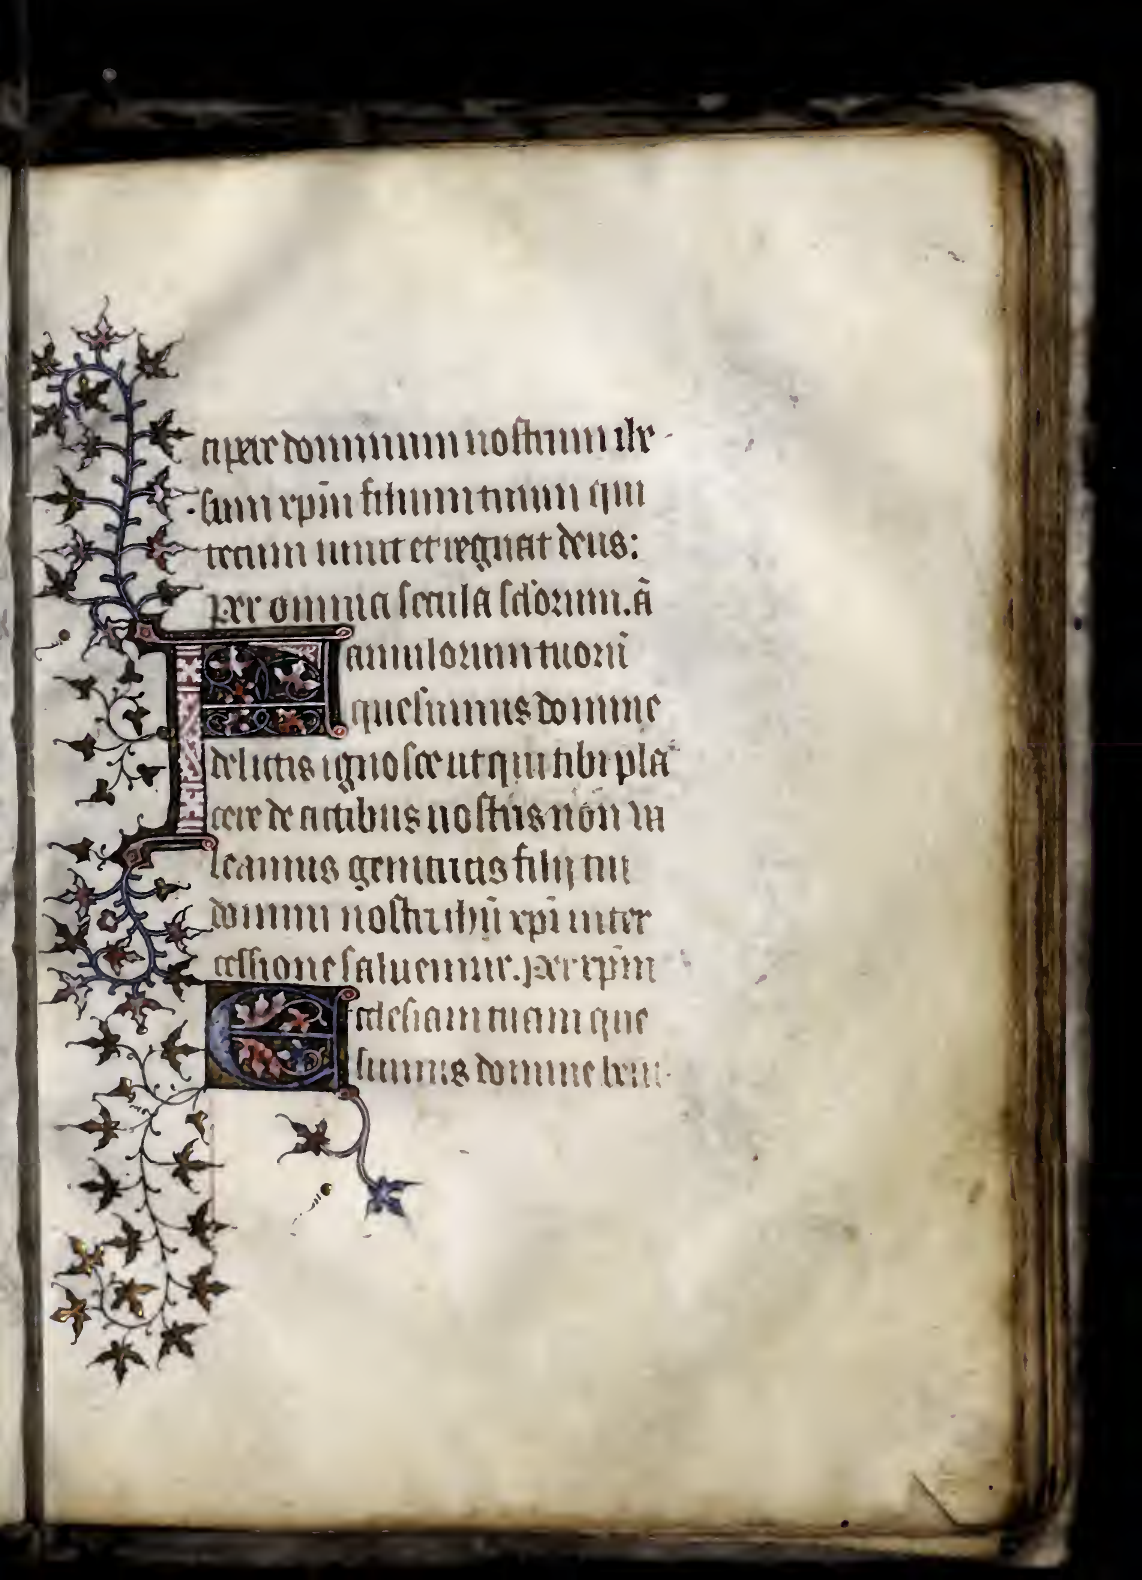 a per dominum nostrum ihe
sum xpm filium tuum qui
tecum uiuit et regnat deus:
per omnia secula sclorum. a
Famulorum tuorum
quesumus domine
delictis ignosce ut qui tibi pla
cere de actibus nostris non ua
leamus genitricis filii tui
domini nostri ihu xpi inter
cessione saluemur. per xpm
Ecclesiam tuam que
sumus domine beni